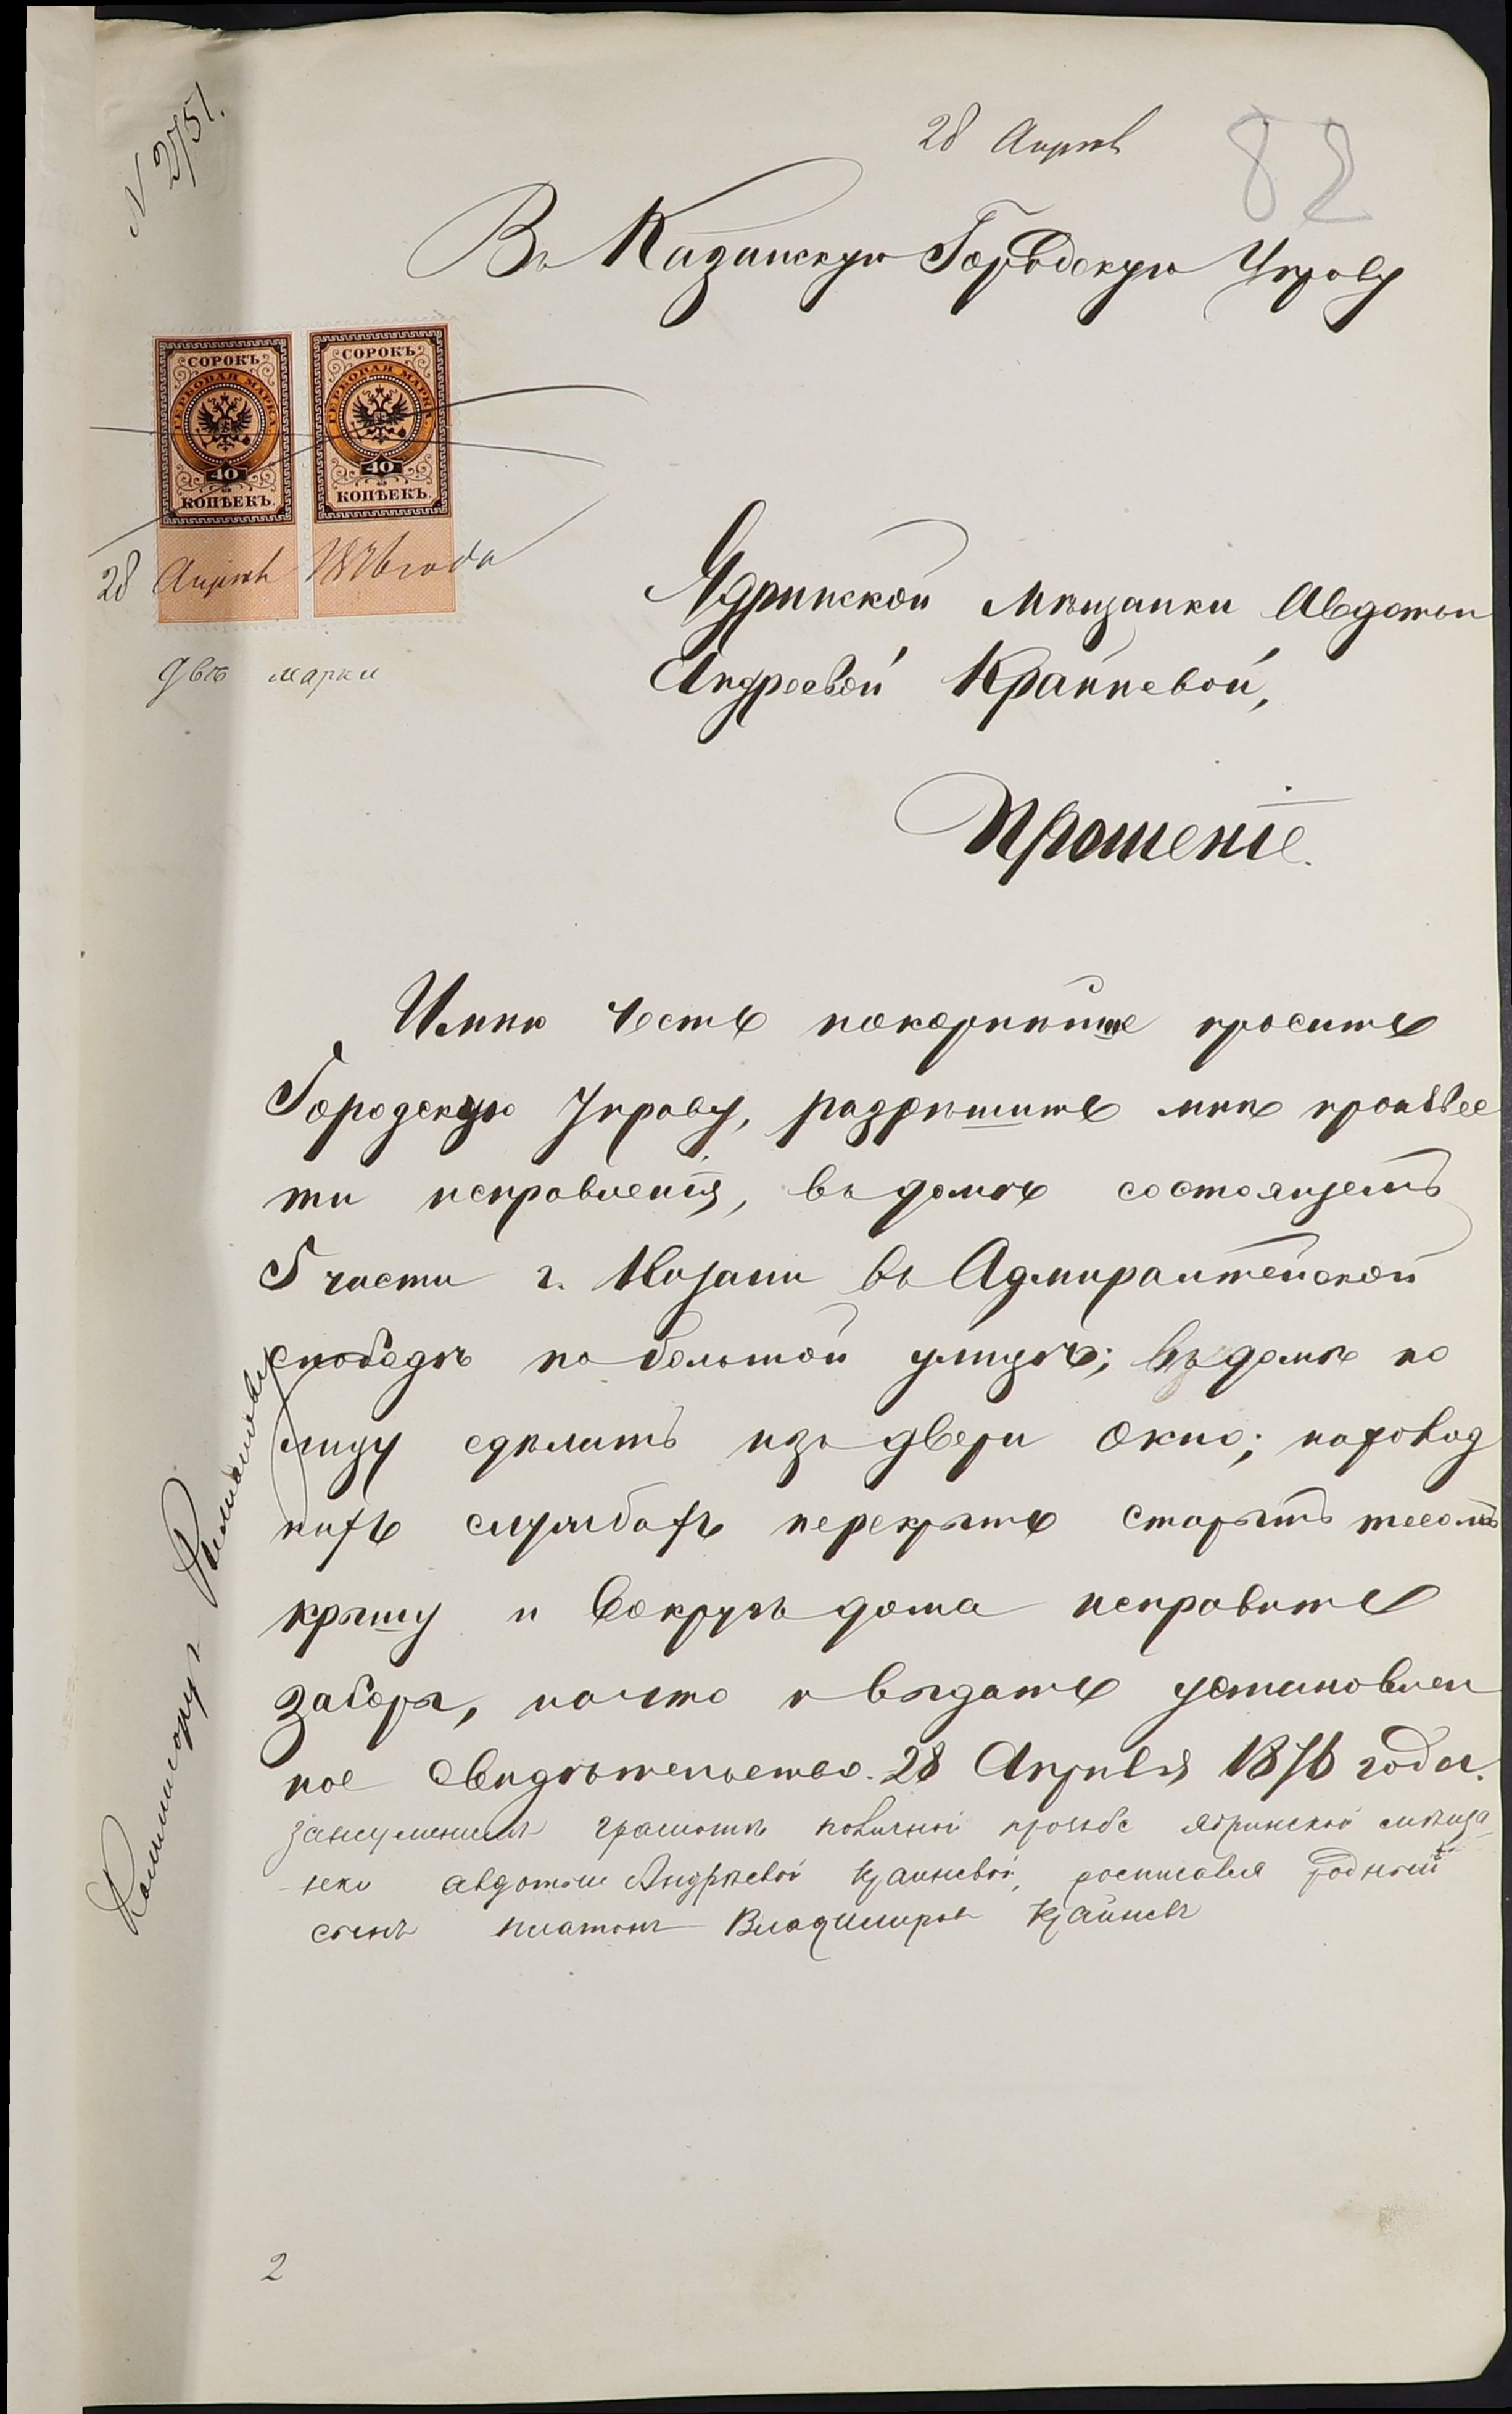 N 2751.
28 Апрѣля
82
Въ Казанскую Городскую Управу
СОРОКЪ
ГЕРБОВАЯ МАРКА
40
КОПѢЕКЪ.
СОРОКЪ
ГЕРБОВАЯ МАРКА
40
КОПѢЕКЪ.
28 Апрѣля 1876 года
двѣ марки
Ядринской мѣщанки Авдотьи
Андреевой Крайневой,
Прошеніе.
Имѣю честь покорнѣйше просить
Городскую Управу, разрѣшить мнѣ произвес
ти исправленія, въ домѣ состоящемъ
5 части г. Казани въ Адмиралтейской
слободѣ по большой улицѣ; въ домѣ по
лицу сдѣлать изъ двери окно; надъ
службахъ перекрыть старымъ тесомъ
крышу и вокругъ дома исправить
заборъ, на что и выдать установлен
ное свидѣтельство. 28 Апрѣля 1876 года.
грамотѣ поличной прозьбе ядринской мѣща
нки авдотьи Андрѣевой Крайневой, росписался родной
сынъ платонъ Владимировъ Крайневъ
2